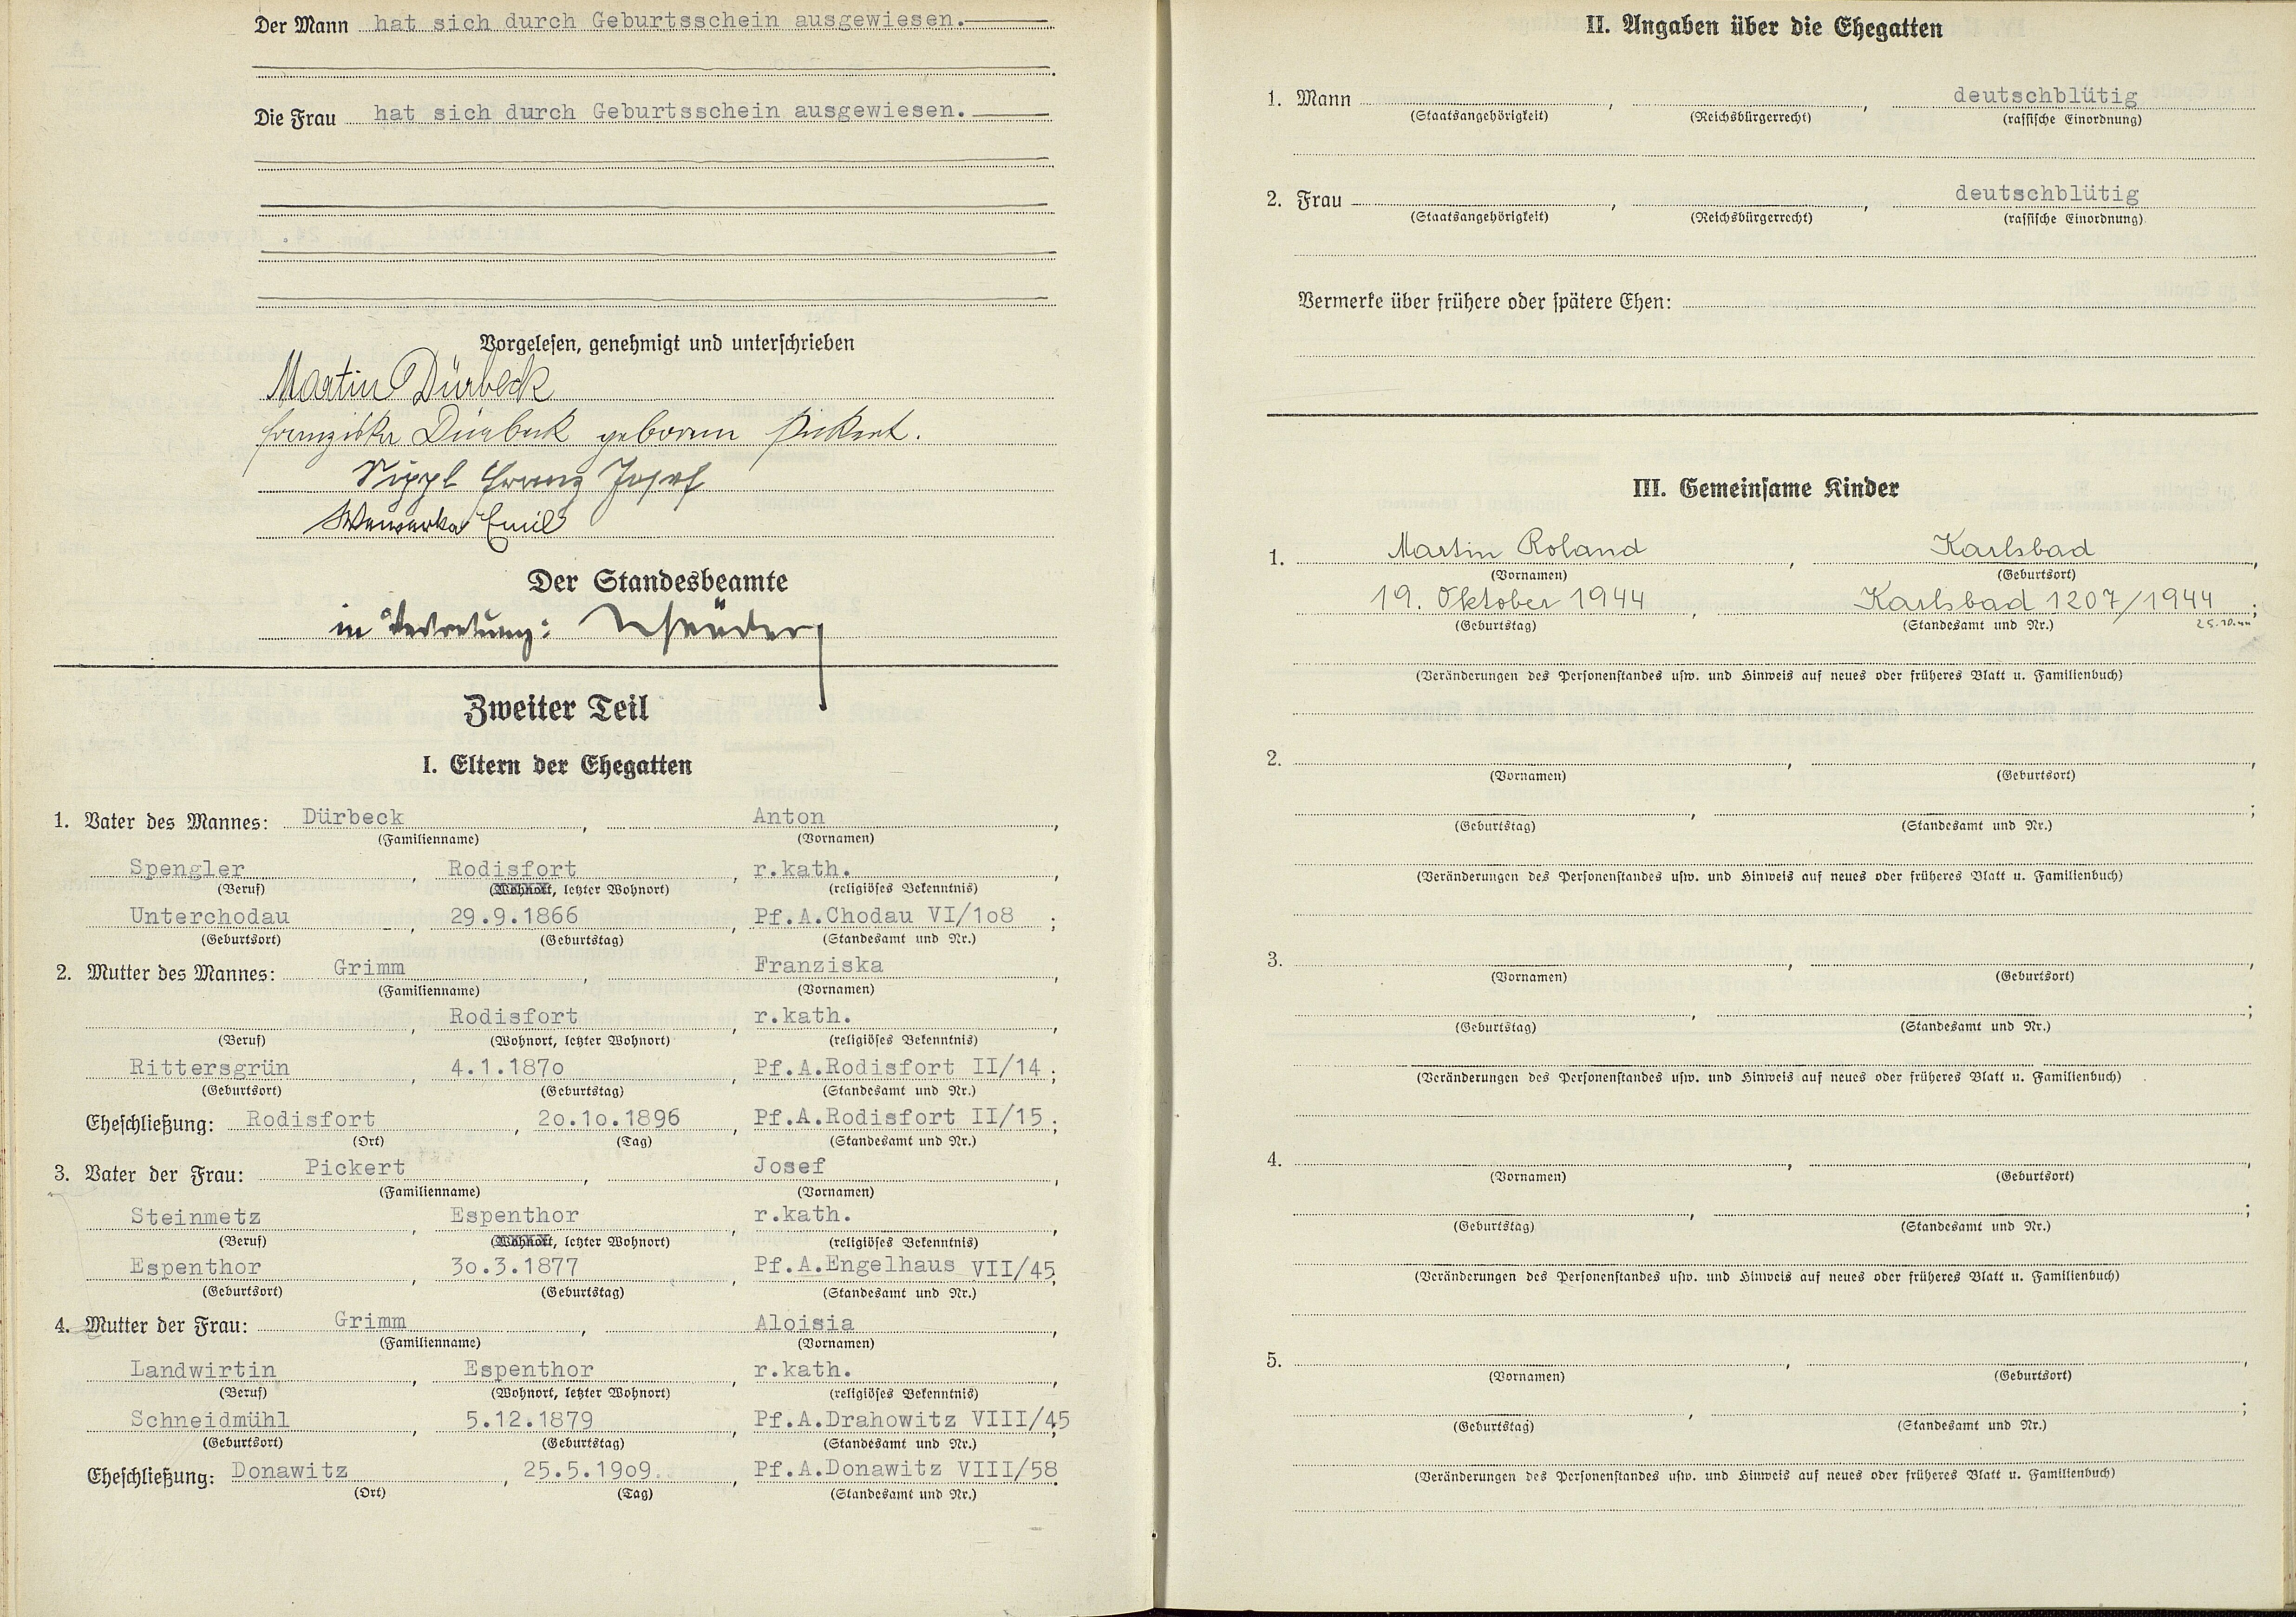 Der Mann hat sich durch Geburtsschein ausgewiesen.
Die Frau hat sich durch Geburtsschein ausgewiesen.
Vorgelesen, genehmigt und unterschrieben
Martin Dürbeck
Franziska Dürbeck geboren Pickert.
Nippl Franz Josef
Wewerka Emil
Der Standesbeamte
in Vertretung:
Zweiter Teil
I. Eltern der Ehegatten
1. Vater des Mannes: Dürbeck, Anton,
(Familienname) (Vornamen)
Spengler, Rodisfort, r.kath.,
(Beruf) (Wohnort, letzter Wohnort) (religiöses Bekenntnis)
Unterchodau, 29.9.1866, Pf.A.Chodau VI/1o8;
(Geburtsort) (Geburtstag) (Standesamt und Nr.)
2. Mutter des Mannes: Grimm, Franziska,
(Familienname) (Vornamen)
, Rodisfort, r.kath.,
(Beruf) (Wohnort, letzter Wohnort) (religiöses Bekenntnis)
Rittersgrün, 4.1.187o, Pf.A.Rodisfort II/14;
(Geburtsort) (Geburtstag) (Standesamt und Nr.)
Eheschließung: Rodisfort, 2o.1o.1896, Pf.A.Rodisfort II/15;
(Ort) (Tag) (Standesamt und Nr.)
3. Vater der Frau: Pickert, Josef,
(Familienname) (Vornamen)
Steinmetz, Espenthor, r.kath.,
(Beruf) (Wohnort, letzter Wohnort) (religiöses Bekenntnis)
Espenthor, 3o.3.1877, Pf.A.Engelhaus VII/45;
(Geburtsort) (Geburtstag) (Standesamt und Nr.)
4. Mutter der Frau: Grimm, Aloisia,
(Familienname) (Vornamen)
Landwirtin, Espenthor, r.kath.,
(Beruf) (Wohnort, letzter Wohnort) (religiöses Bekenntnis)
Schneidmühl, 5.12.1879, Pf.A.Drahowitz VIII/45;
(Geburtsort) (Geburtstag) (Standesamt und Nr.)
Eheschließung: Donawitz, 25.5.19o9., Pf.A.Donawitz VIII/58.
(Ort) (Tag) (Standesamt und Nr.)
II. Angaben über die Ehegatten
1. Mann , , deutschblütig
(Staatsangehörigkeit) (Reichsbürgerrecht) (rassische Einordnung)
2. Frau , , deutschblütig
(Staatsangehörigkeit) (Reichsbürgerrecht) (rassische Einordnung)
Vermerke über frühere oder spätere Ehen:
III. Gemeinsame Kinder
1. Martin Roland, Karlsbad,
(Vornamen) (Geburtsort)
19. Oktober 1944, Karlsbad 1207/1944;
(Geburtstag) (Standesamt und Nr.)
(Veränderungen des Personenstandes usw. und Hinweis auf neues oder früheres Blatt u. Familienbuch)
2. , ,
(Vornamen) (Geburtsort)
, ;
(Geburtstag) (Standesamt und Nr.)
(Veränderungen des Personenstandes usw. und Hinweis auf neues oder früheres Blatt u. Familienbuch)
3. , ,
(Vornamen) (Geburtsort)
, ;
(Geburtstag) (Standesamt und Nr.)
(Veränderungen des Personenstandes usw. und Hinweis auf neues oder früheres Blatt u. Familienbuch)
4. , ,
(Vornamen) (Geburtsort)
, ;
(Geburtstag) (Standesamt und Nr.)
(Veränderungen des Personenstandes usw. und Hinweis auf neues oder früheres Blatt u. Familienbuch)
5. , ,
(Vornamen) (Geburtsort)
, ;
(Geburtstag) (Standesamt und Nr.)
(Veränderungen des Personenstandes usw. und Hinweis auf neues oder früheres Blatt u. Familienbuch)